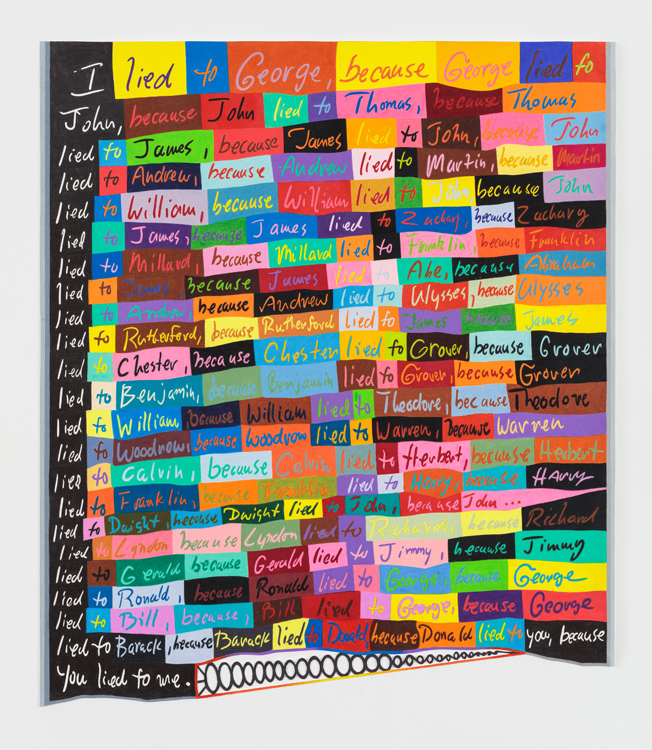 I lied to George, because George lied to
John, because John lied to Thomas, because Thomas
lied to James, because James lied to John, because John
lied to Andrew, because Andrew lied to Martin, because Martin
lied to William, because William lied to John, because John
lied to James, because James lied to Zachary, because Zachary
lied to Millard, because Millard lied to Franklin, because Franklin
lied to James because James lied to Abe, because Abraham
lied to Andrew, because Andrew lied to Ulysses, because Ulysses
lied to Rutherford, because Rutherford lied to James because James
lied to Chester, because Chester lied to Grover, because Grover
lied to Benjamin, because Benjamin lied to Grover, because Grover
lied to William because William lied to Theodore, because Theodore
lied to Woodrow, because Woodrow lied to Warren, because Warren
lied to Calvin, because Calvin lied to Herbert, because Herbert
lied to Franklin, because Franklin lied to Harry, because Harry
lied to Dwight, because Dwight lied to John, because John ...
lied to Lyndon because Lyndon lied to Richard, because Richard
lied to Gerald because Gerald lied to Jimmy, because Jimmy
lied to Ronald, because Ronald lied to George, because George
lied to Bill, because, Bill lied to George, because George
lied to Barack, because Barack lied to Donald because Donald lied to you, because
You lied to me.